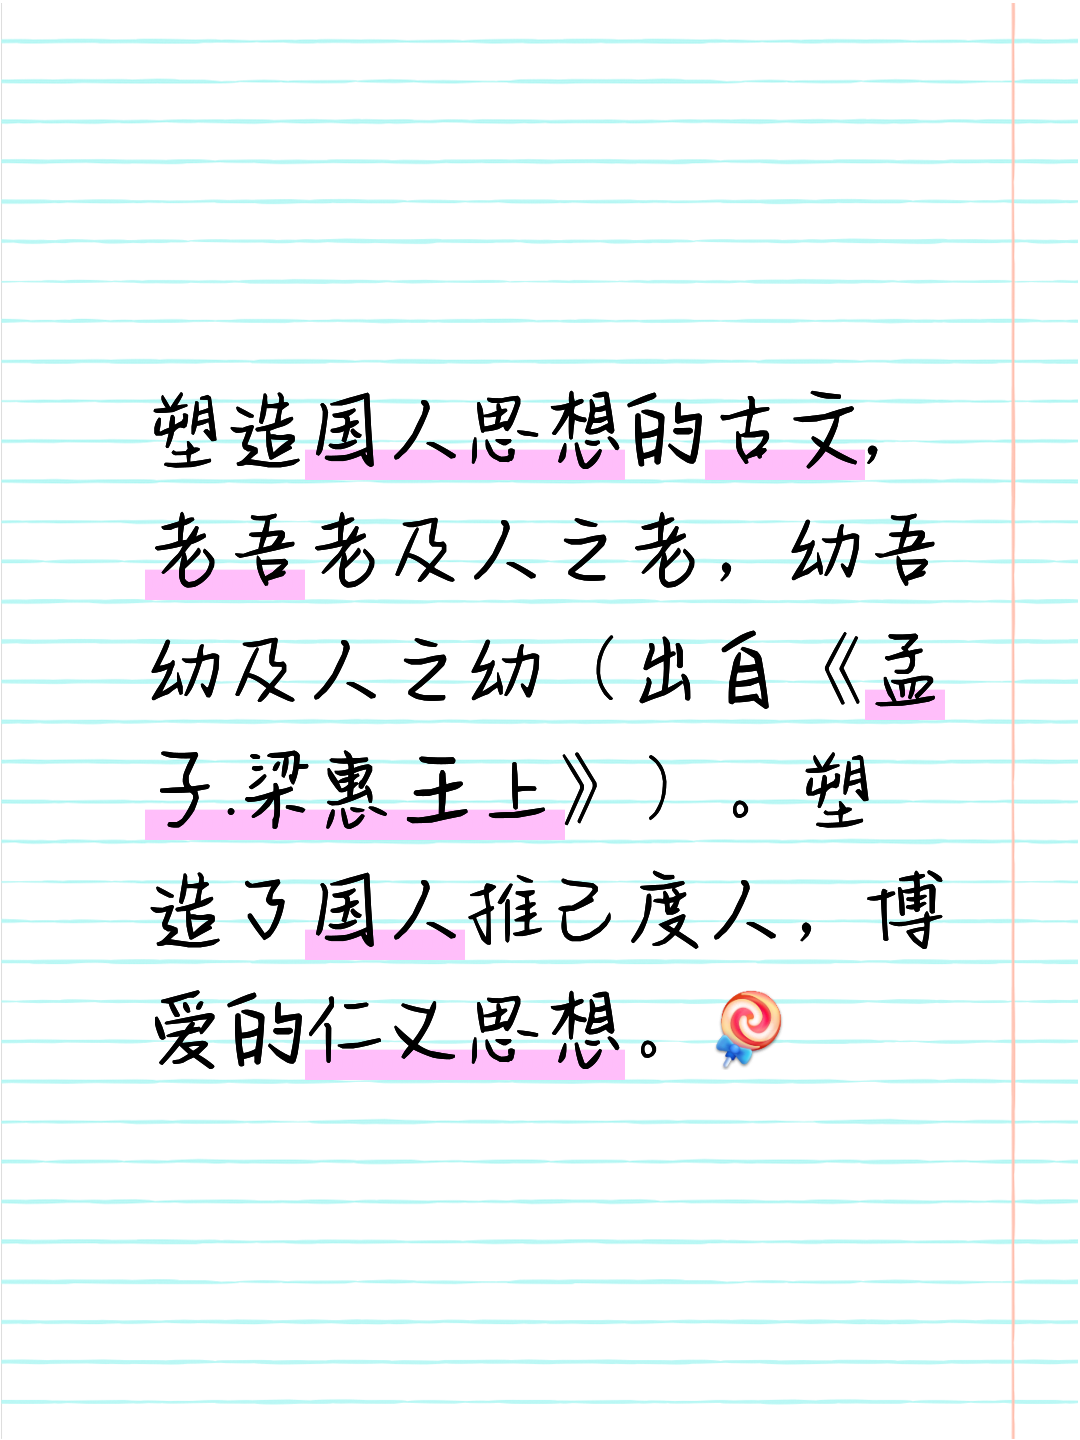 塑造国人思想的古文，
老吾老及人之老，幼吾
幼及人之幼（出自《孟
子.梁惠王上》）。塑
造了国人推己度人，博
爱的仁义思想。🍭